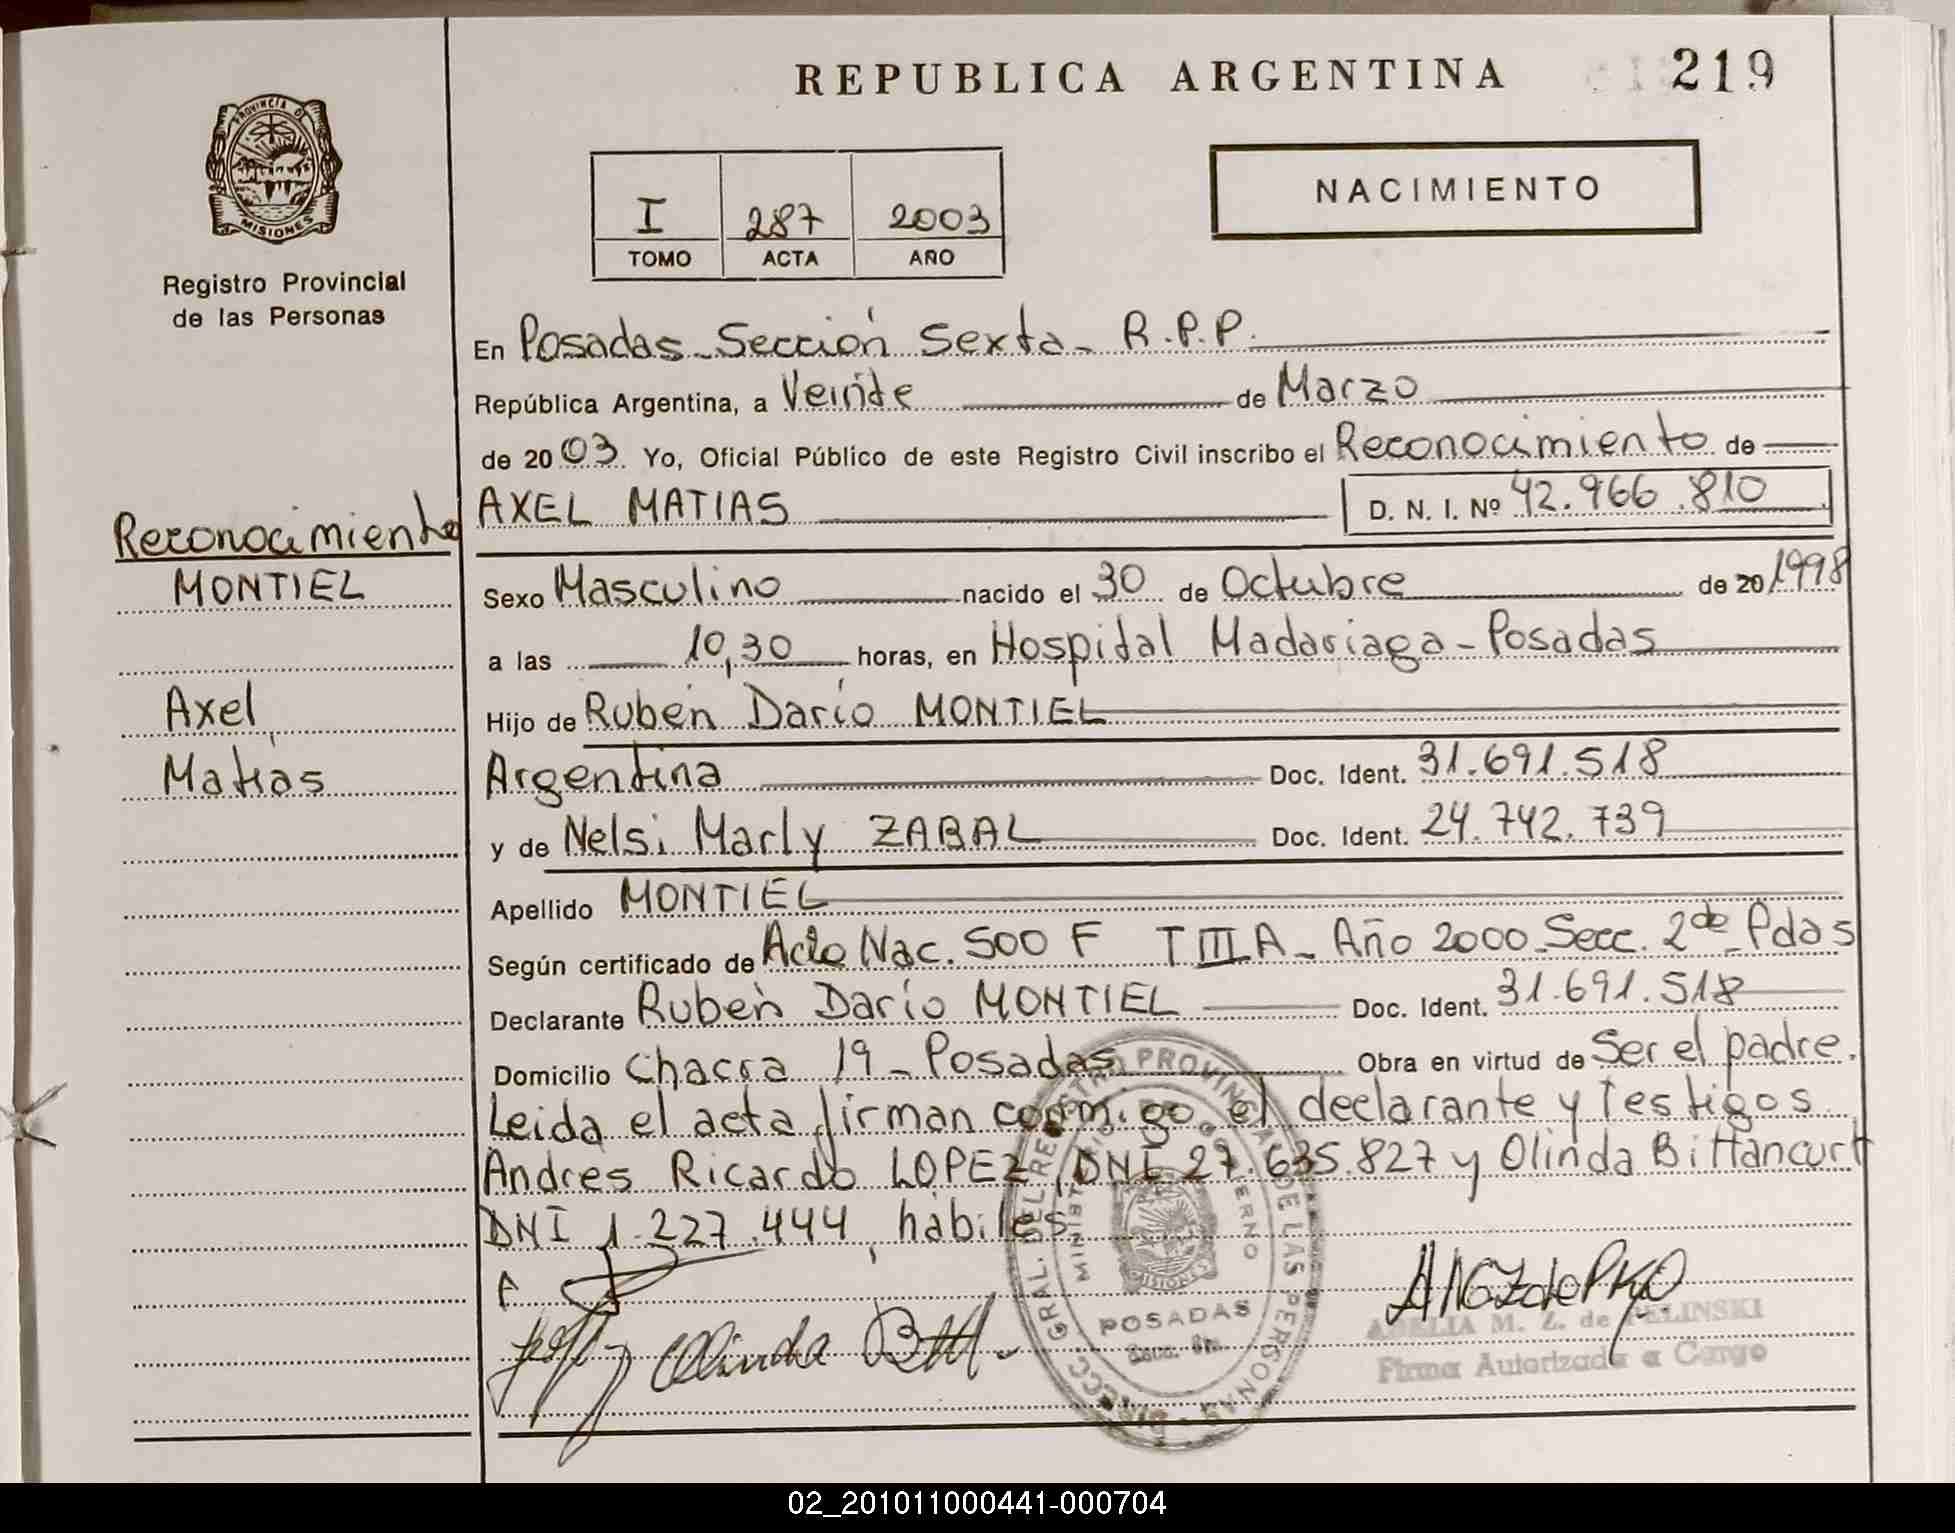 REPUBLICA ARGENTINA
219
PROVINCIA DE
MISIONES
Registro Provincial
de las Personas
I 287 2003
TOMO ACTA AÑO
NACIMIENTO
En Posadas - Sección Sexta - R.P.P.
República Argentina, a Veinte de Marzo
de 2003 Yo, Oficial Público de este Registro Civil inscribo el Reconocimiento de
AXEL MATIAS D. N. I. Nº 42.966.810
Reconocimiento
MONTIEL
Axel
Matías
Sexo Masculino nacido el 30 de Octubre de 20 1998
a las 10,30 horas, en Hospital Madariaga - Posadas
Hijo de Rubén Darío MONTIEL
Argentina Doc. Ident. 31.691.518
y de Nelsi Marly ZABAL Doc. Ident. 24.742.739
Apellido MONTIEL
Según certificado de Acta Nac. 500 F T III A - Año 2000 - Secc. 2da Pdas
Declarante Rubén Darío MONTIEL Doc. Ident. 31.691.518
Domicilio Chacra 19 - Posadas Obra en virtud de Ser el padre.
Leida el acta firman conmigo el declarante y Testigos
Andres Ricardo LOPEZ, DNI 27.635.827 y Olinda Bittancurt
DNI 1.227.444, habiles
Olinda
GRAL. DEL REGISTRO PROVINCIAL DE LAS PERSONAS
MINISTERIO DE GOBIERNO
MISIONES
POSADAS
ADELIA M. Z. de PELINSKI
Firma Autorizada a Cargo
02_201011000441-000704